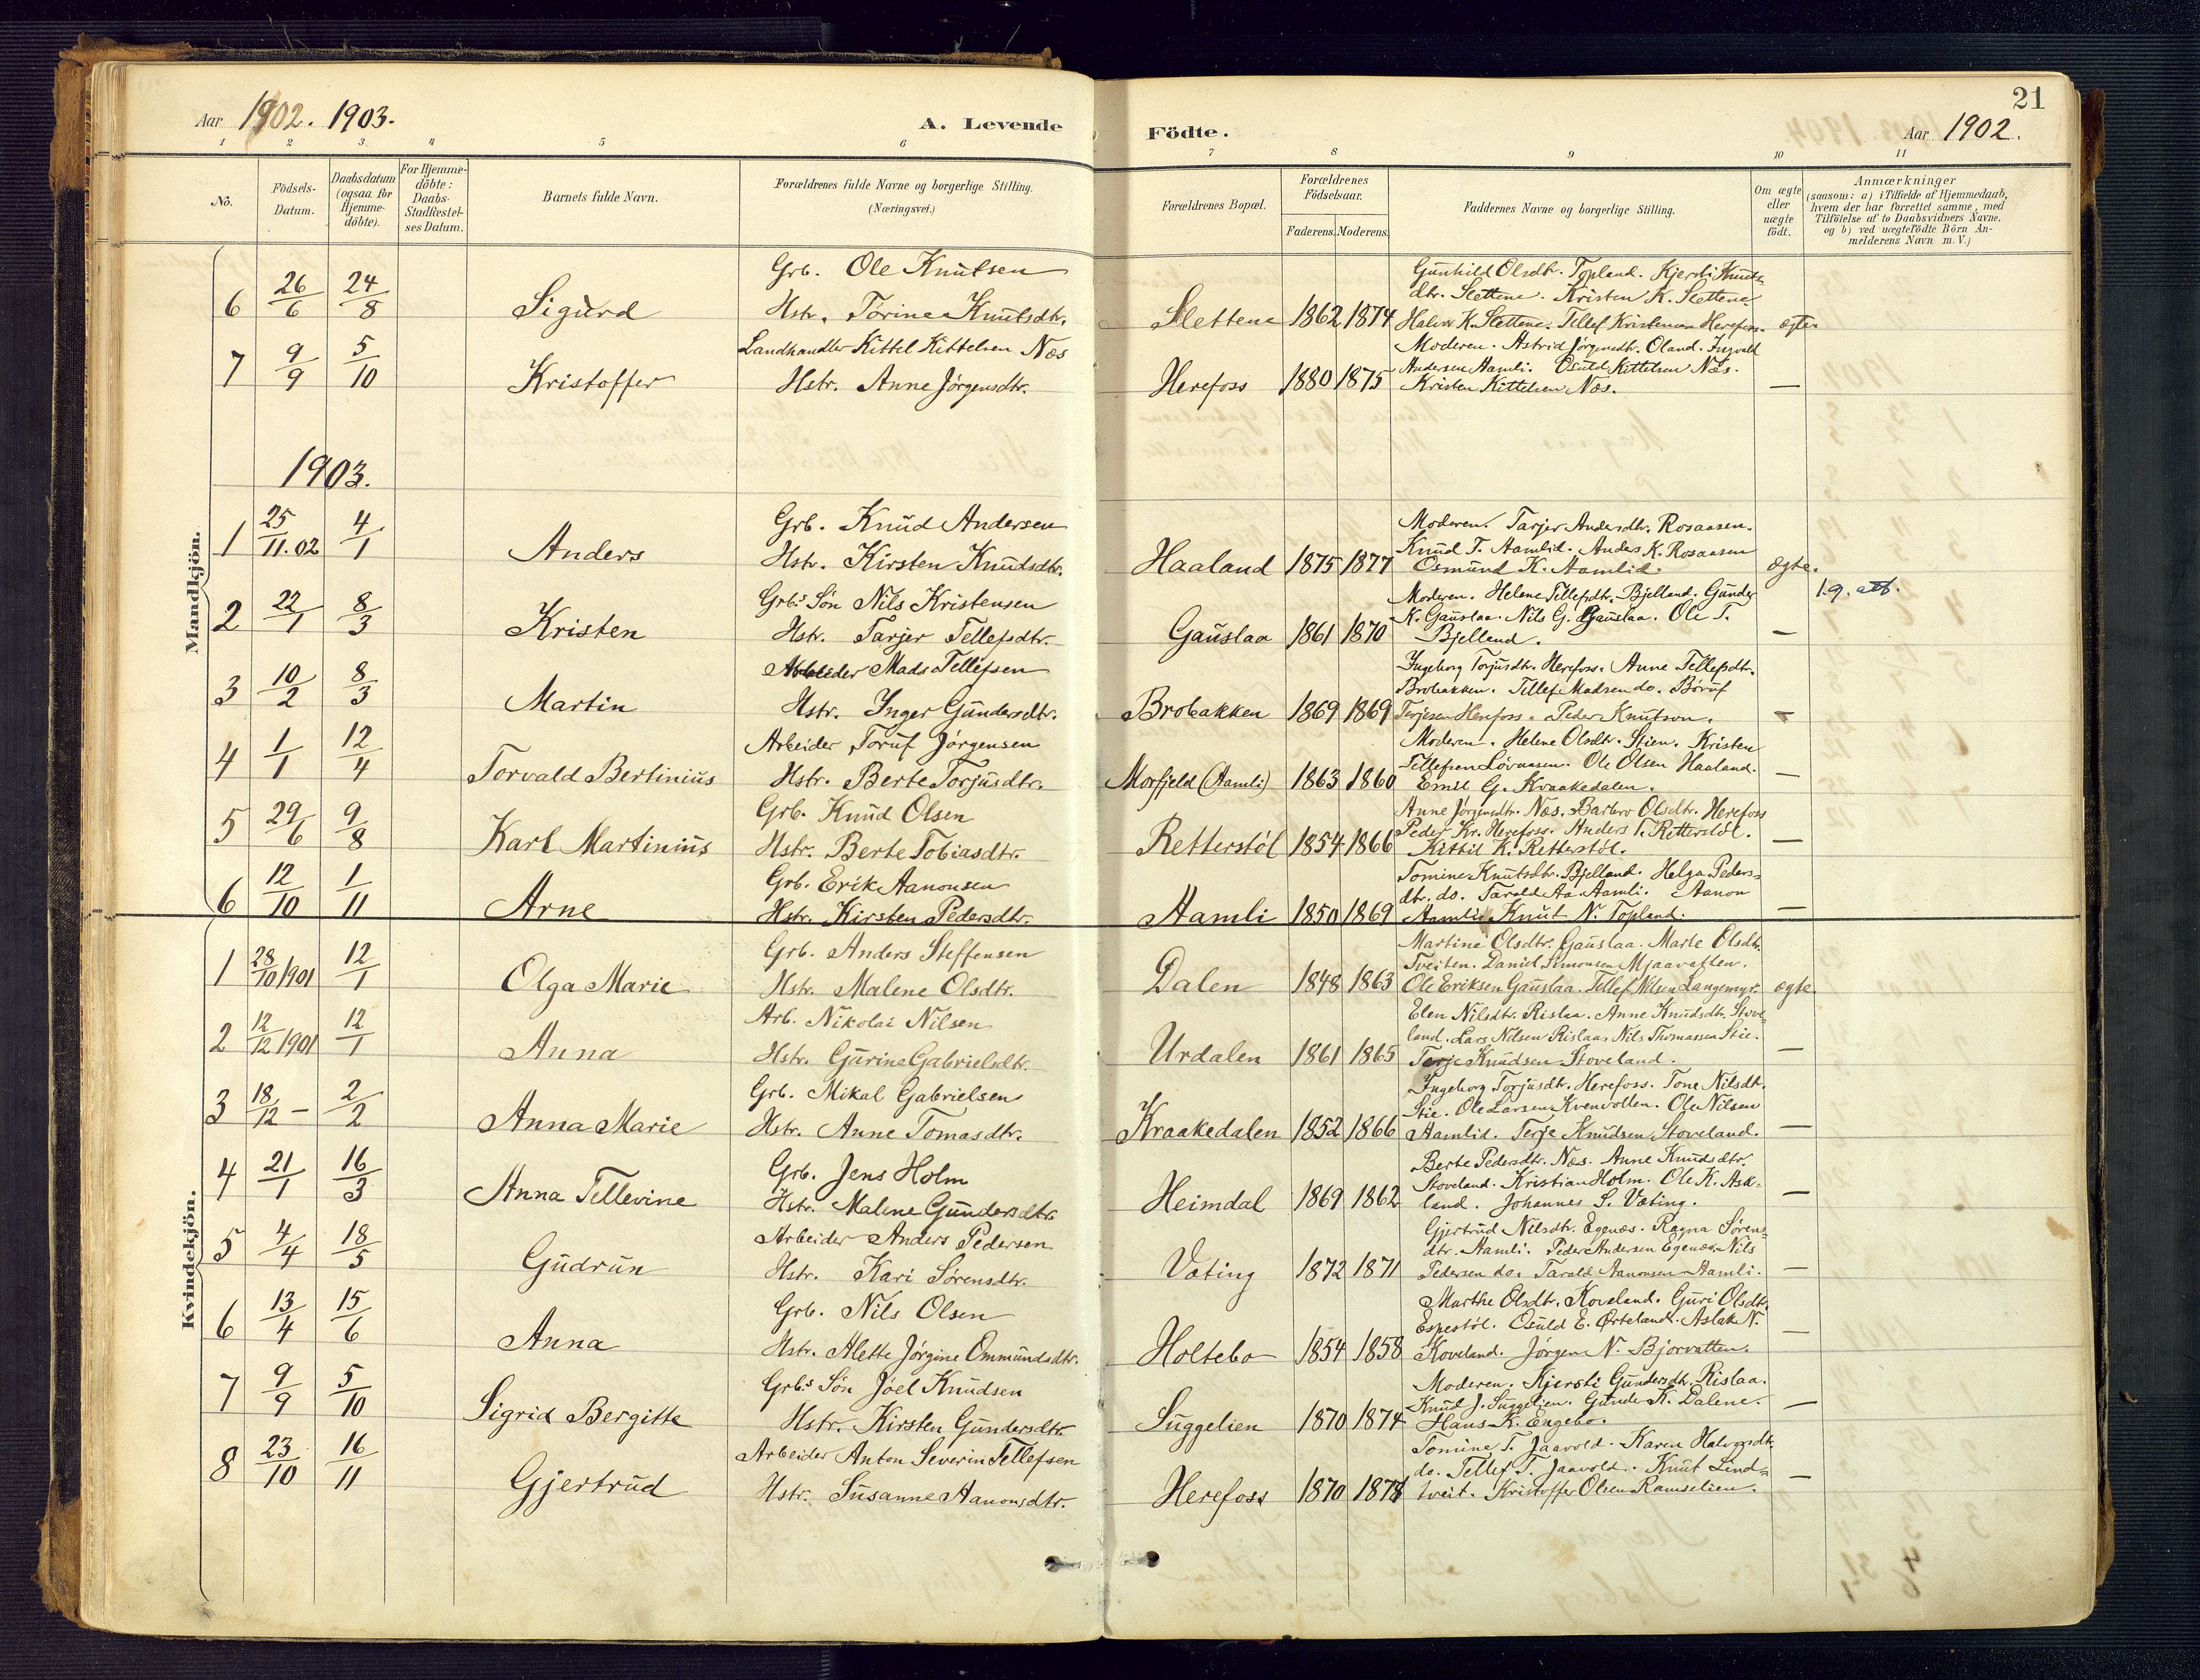 21
Aar 1902. 1903. A. Levende Födte. Aar 1902.
1 2 3 4 5 6 7 8 9 10 11
No.
Födsels-
Datum.
Daabsdatum
(ogsaa for
Hjemme-
döbte).
For Hjemme-
döbte:
Daabs-
Stadfæstel-
ses Datum.
Barnets fulde Navn.
Forældrenes fulde Navne og borgerlige Stilling.
(Næringsvei.)
Forældrenes Bopæl.
Forældrenes
Födselsaar.
Faderens. Moderens.
Faddernes Navne og borgerlige Stilling.
Om ægte
eller
uægte
födt.
Anmærkninger
(saasom: a) i Tilfælde af Hjemmedaab,
hvem der har forrettet samme, med
Tilföielse af to Daabsvidners Navne,
og b) ved uægtefödte Börn An-
melderens Navn m. V.)
Mandkjön.
6 26/6 24/8 Sigurd
Grb. Ole Knutsen
Hstr. Torine Knutsdtr.
Slettene 1862 1874
Gunhild Olsdtr. Topland. Kjersti Knuts-
dtr. Slettene. Kristen K. Slettene.
Halvor K. Slettene. Tellef Kristensen Herefoss. ægte
7 9/9 5/10 Kristoffer
Landhandler Kittel Kittelsen Næs
Hstr. Anne Jørgensdtr.
Herefoss 1880 1875
Moderen. Astrid Jørgensdtr. Oland. Ingvald
Andersen Aamli. Osuld Kittelsen Næs.
Kristen Kittelsen Næs. —
1903.
1 25/11.02 4/1 Anders
Grb. Knud Andersen
Hstr. Kirsten Knudsdtr.
Haaland 1875 1877
Moderen. Tarjer Andersdtr. Rosaasen.
Knud T. Aamlid. Anders K. Rosaasen
Osmund K. Aamlid. ægte.
2 22/1 8/3 Kristen
Grb.s Søn Nils Kristensen
Hstr. Tarjer Tellefsdtr.
Gauslaa 1861 1870
Moderen. Helene Tellefsdtr. Bjelland. Gunder
K. Gauslaa. Nils G. Gauslaa. Ole T.
Bjelland. — 1.9. att.
3 10/2 8/3 Martin
Arbeider Mads Tellefsen
Hstr. Inger Gundersdtr.
Brobakken 1869 1869
Ingeborg Torjusdtr. Herefoss. Anne Tellefsdtr.
Brobakken. Tellef Madsen do. Boruf
Terjesen Herefoss. Peder Knutson. —
4 1/1 12/4 Torvald Bertinius
Arbeider Toruf Jørgensen
Hstr. Berte Torjusdtr.
Morfjeld (Aamli) 1863 1860
Moderen. Helene Olsdtr. Stien. Kristen
Tellefsen Løvaasen. Ole Olsen Haaland.
Emil G. Kraakedalen. —
5 29/6 9/8 Karl Martinius
Grb. Knud Olsen
Hstr. Berte Tobiasdtr.
Retterstøl 1854 1866
Anne Jørgensdtr. Næs. Barbro Olsdtr. Herefoss
Peder Kr. Herefoss. Anders K. Retterstøl.
Kittil K. Retterstøl. —
6 12/10 1/11 Arne
Grb. Erik Aanonsen
Hstr. Kirsten Pedersdtr.
Aamli 1850 1869
Tomine Knutsdtr. Bjelland. Helga Peders-
dtr. do. Tarald Aa. Aamli. Aanon
Aamli. Knut N. Topland. —
Kvindekjön.
1 28/10 1901 12/1 Olga Marie
Grb. Anders Steffensen
Hstr. Malene Olsdtr.
Dalen 1848 1863
Martine Olsdtr. Gauslaa. Marte Olsdtr.
Tveiten. Daniel Simonsen Mjaavatten.
Ole Eriksen Gauslaa. Tellef Nilsen Langemyr. ægte.
2 12/12 1901 12/1 Anna
Arb. Nikolai Nilsen
Hstr. Gurine Gabrielsdtr.
Urdalen 1861 1865
Elen Nilsdtr. Rislaa. Anne Knudsdtr. Stove-
land. Lars Nilsen Rislaa. Nils Thomassen Stie.
Terje Knudsen Stoveland. —
3 18/12 — 2/2 Anna Marie
Grb. Mikal Gabrielsen
Hstr. Anne Tomasdtr.
Kraakedalen 1852 1866
Ingeborg Torjusdtr. Herefoss. Tone Nilsdtr.
Stie. Ole Larsen Kvenvolten. Ole Nilsen
Aamlid. Terje Knudsen Stoveland. —
4 21/1 16/3 Anna Tellevine
Grb. Jens Holm
Hstr. Malene Gundersdtr.
Heimdal 1869 1862
Berte Pedersdtr. Næs. Anne Knudsdtr.
Stoveland. Kristian Holm. Ole K. Ask-
land. Johannes S. Væting. —
5 4/4 18/5 Gudrun
Arbeider Anders Pedersen
Hstr. Kari Sørensdtr.
Væting 1872 1871
Gjertrud Nilsdtr. Egenæs. Ragna Sørens-
dtr. Aamli. Peder Andersen Egenæs. Nils
Pedersen do. Tarald Aanonsen Aamli. —
6 13/4 15/6 Anna
Grb. Nils Olsen
Hstr. Alette Jørgine Ommundsdtr.
Holtebo 1854 1858
Marthe Olsdtr. Koveland. Guri Olsdtr.
Espestøl. Osuld E. Ørteland. Aslak N.
Koveland. Jørgen N. Bjorvatten. —
7 9/9 5/10 Sigrid Bergitte
Grb.s Søn Joel Knudsen
Hstr. Kirsten Gundersdtr.
Suggelien 1870 1874
Moderen. Kjersti Gundersdtr. Rislaa.
Knud J. Suggelien. Gunder K. Dalene.
Hans K. Engebo. —
8 23/10 16/11 Gjertrud
Arbeider Anton Severin Tellefsen
Hstr. Susanne Aanonsdtr.
Herefoss 1870 1874
Tomine T. Jaavold. Karen Halvorsdtr.
do. Tellef T. Jaavold. Knut Lind-
tveit. Kristoffer Olsen Ramselien. —